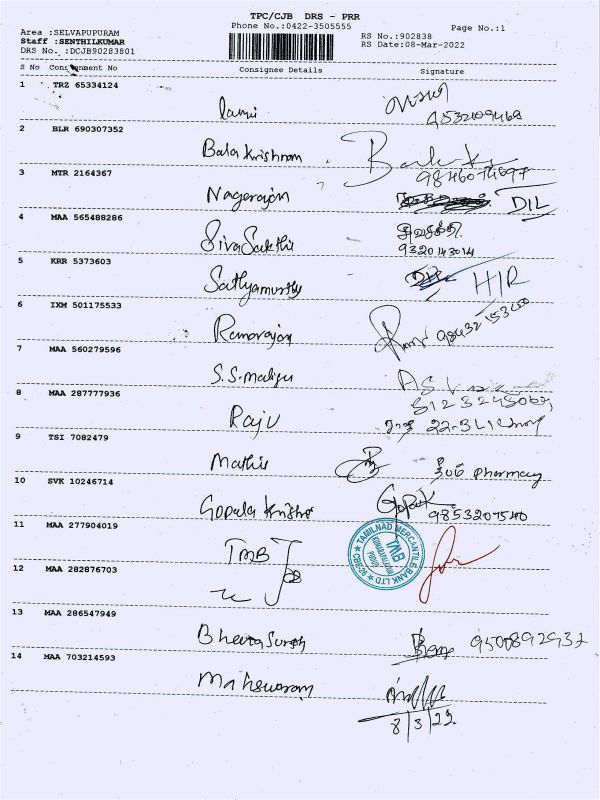 TPC/CJB DRS - PRR
Phone No.:0422-3505555
Page No.:1
Area :SELVAPUPURAM
Staff :SENTHILKUMAR
DRS No. :DCJB90283801
RS No.:902838
RS Date:08-Mar-2022
S No Consignment No Consignee Details Signature
1 TRZ 65334124
2 BLR 690307352
Balakrishnan
3 MTR 2164367
Nagarajan DIL
4 MAA 565488286
SivaSakthi
9320143014
5 KRR 5373603
Sathyamurthy H/R
6 IXM 501175533
Ramarajan
7 MAA 560279596
8 MAA 287777936
Raju
9 TSI 7082479
Mathi Pharmacy
10 SVK 10246714
Gopala Krishna Gopak
9853207540
11 MAA 277904019
TMB
TAMILNAD MERCANTILE BANK LTD
TMB
12 MAA 282876703
13 MAA 286547949
9500892937
14 MAA 703214593
Maheswaran
8/3/22